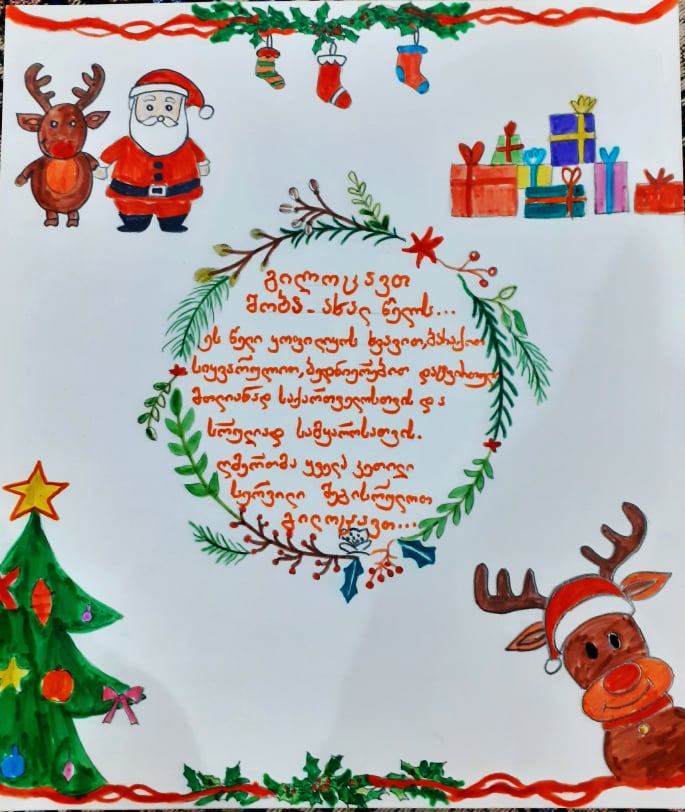 გილოცავთ
შობა-ახალ წელს...
ეს წელი ყოფილყოს ხვავით, ბარაქით
სიყვარულით, ბედნიერებით დატვირთული
მთლიანად საქართველოსთვის და
სრულიად სამყაროსათვის.
ღმერთმა ყველა კეთილი
სურვილი შეგისრულოთ
გილოცავთ...